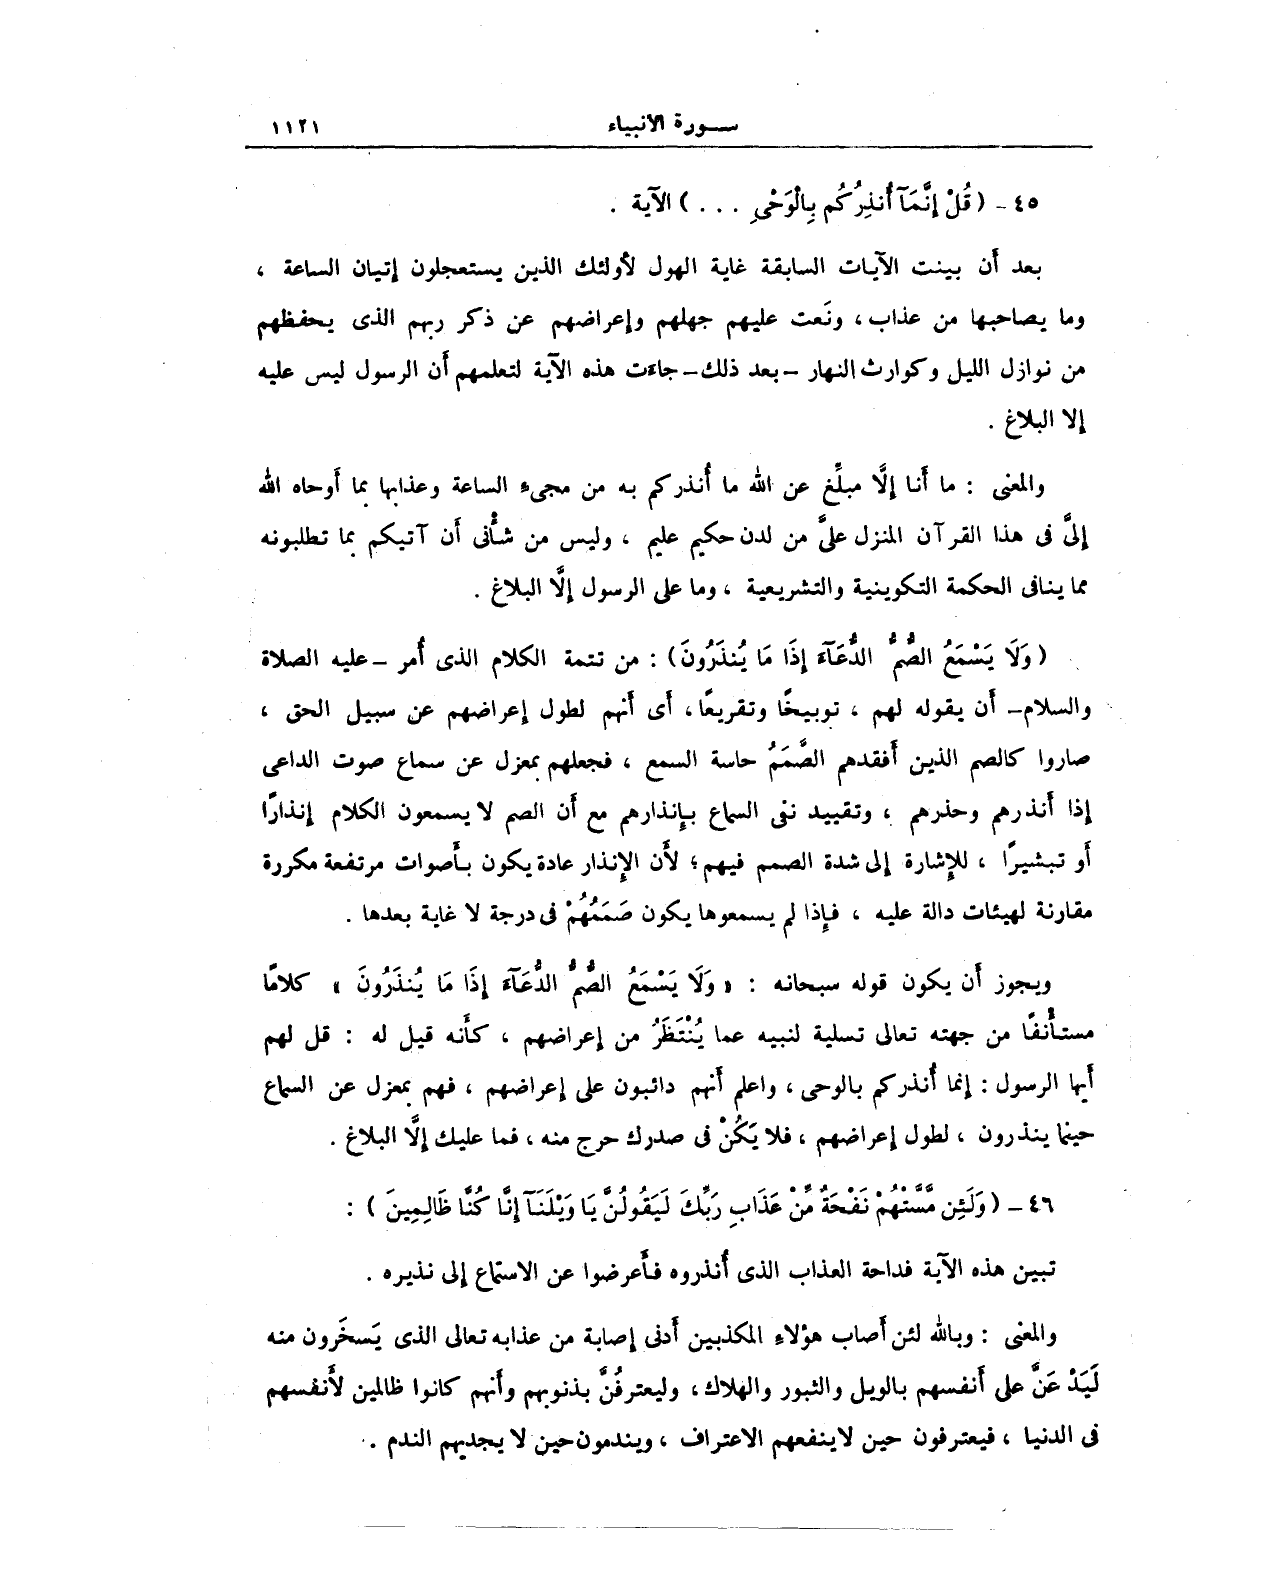 سورة الأنبياء ١١٢١
٤٥ - ( قُلْ إِنَّمَآ أُنذِرُكُم بِالْوَحْىِ . . . ) الآية .
بعد أن بينت الآيات السابقة غاية الهول لأولئك الذين يستعجلون إتيان الساعة ،
وما يصاحبها من عذاب ، ونَعت عليهم جهلهم وإعراضهم عن ذكر ربهم الذى يحفظهم
من نوازل الليل وكوارث النهار - بعد ذلك - جاءت هذه الآية لتعلمهم أن الرسول ليس عليه
إلا البلاغ .
والمعنى : ما أنا إلَّا مبلِّغ عن الله ما أُنذركم به من مجىء الساعة وعذابها بما أوحاه الله
إلىَّ فى هذا القرآن المنزل علىَّ من لدن حكيم عليم ، وليس من شأنى أن آتيكم بما تطلبونه
مما ينافى الحكمة التكوينية والتشريعية ، وما على الرسول إلَّا البلاغ .
( وَلَا يَسْمَعُ الصُّمُّ الدُّعَآءَ إِذَا مَا يُنذَرُونَ ) : من تتمة الكلام الذى أُمر - عليه الصلاة
والسلام - أن يقوله لهم ، توبيخًا وتقريعًا ، أى أنهم لطول إعراضهم عن سبيل الحق ،
صاروا كالصم الذين أفقدهم الصَّمَمُ حاسة السمع ، فجعلهم بمعزل عن سماع صوت الداعى
إذا أنذرهم وحذرهم ، وتقييد نفى السماع بإنذارهم مع أن الصم لا يسمعون الكلام إنذارًا
أو تبشيرًا ، للإشارة إلى شدة الصمم فيهم ؛ لأن الإنذار عادة يكون بأصوات مرتفعة مكررة
مقارنة لهيئات دالة عليه ، فإذا لم يسمعوها يكون صَمَمُهُمْ فى درجة لا غاية بعدها .
ويجوز أن يكون قوله سبحانه : « وَلَا يَسْمَعُ الصُّمُّ الدُّعَآءَ إِذَا مَا يُنذَرُونَ » كلامًا
مستأنفًا من جهته تعالى تسلية لنبيه عما يُنْتَظَرُ من إعراضهم ، كأنه قيل له : قل لهم
أيها الرسول : إنما أُنذركم بالوحى ، واعلم أنهم دائبون على إعراضهم ، فهم بمعزل عن السماع
حينما ينذرون ، لطول إعراضهم ، فلا يَكُنْ فى صدرك حرج منه ، فما عليك إلَّا البلاغ .
٤٦ - ( وَلَئِن مَّسَّتْهُمْ نَفْحَةٌ مِّنْ عَذَابِ رَبِّكَ لَيَقُولُنَّ يَا وَيْلَنَآ إِنَّا كُنَّا ظَالِمِينَ ) :
تبين هذه الآية فداحة العذاب الذى أُنذروه فأعرضوا عن الاستماع إلى نذيره .
والمعنى : وبالله لئن أصاب هؤلاءِ المكذبين أدنى إصابة من عذابه تعالى الذى يَسخَرون منه
لَيَدْعَنَّ على أنفسهم بالويل والثبور والهلاك ، وليعترفُنَّ بذنوبهم وأنهم كانوا ظالمين لأنفسهم
فى الدنيا ، فيعترفون حين لا ينفعهم الاعتراف ، ويندمون حين لا يجديهم الندم .